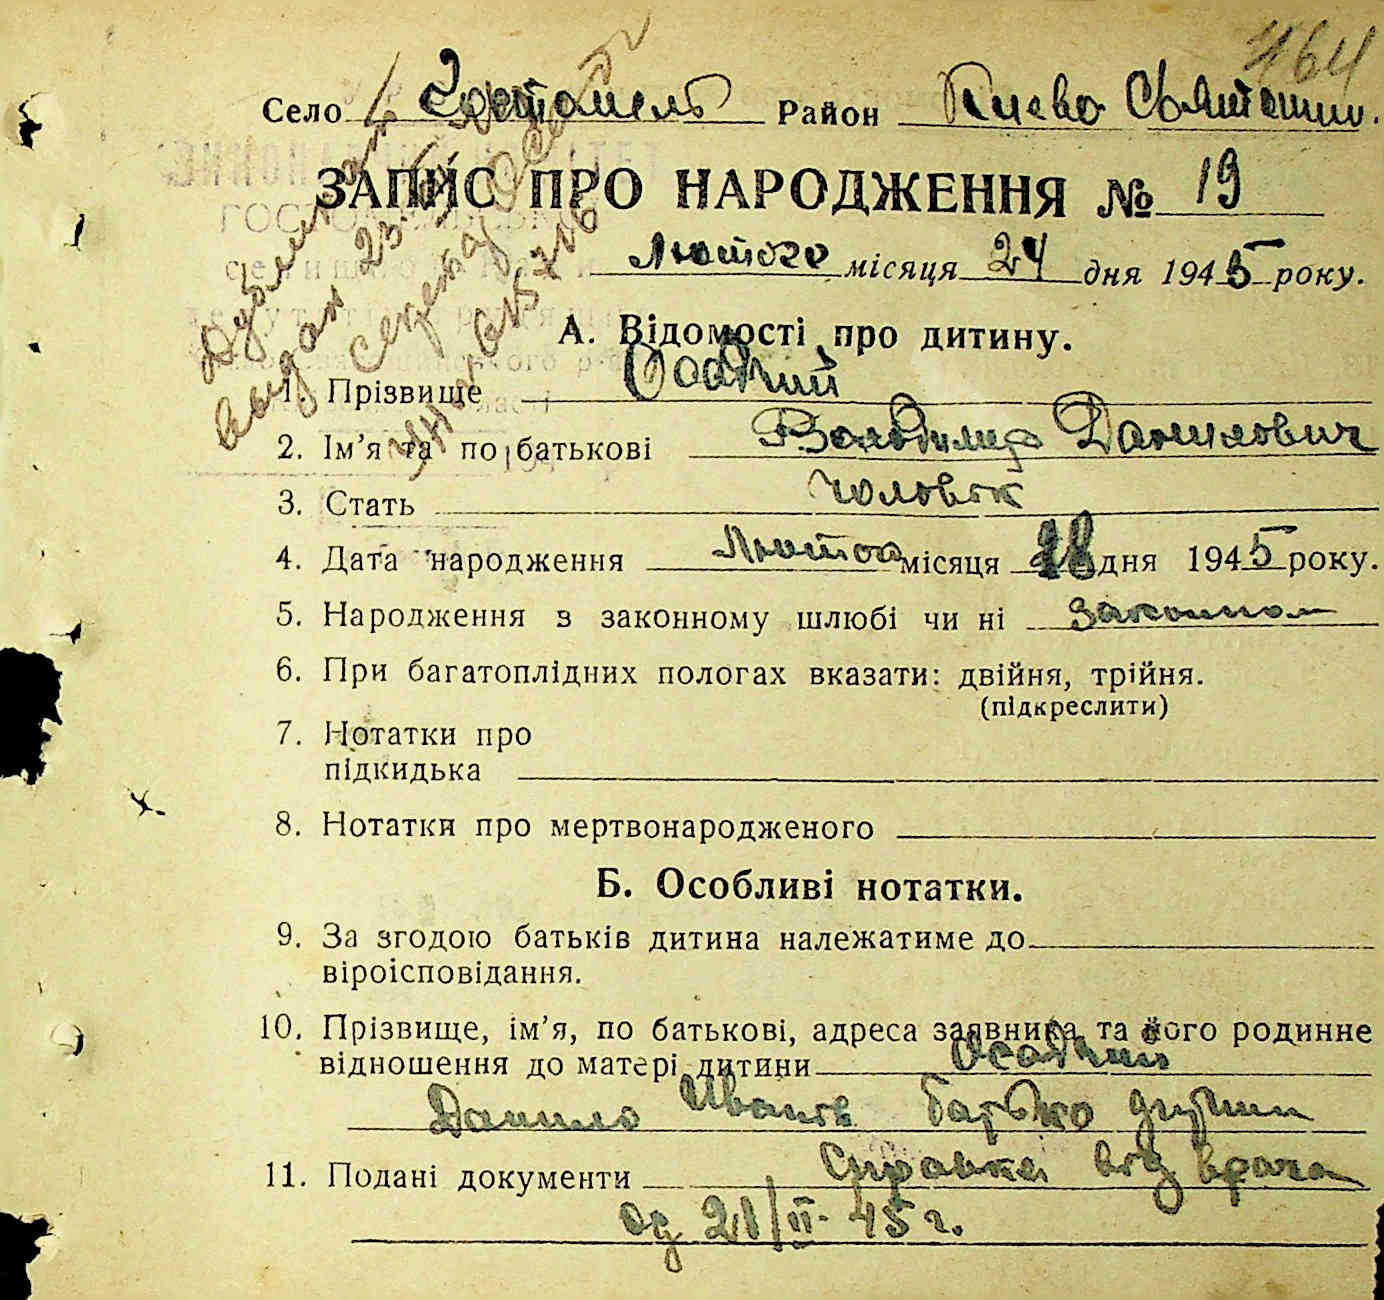 464
Село Гостомель Район Києво Святошин.
ЗАПИС ПРО НАРОДЖЕННЯ № 19
Лютого місяця 24 дня 1945 року.
А. Відомості про дитину.
1. Прізвище Осадчий
2. Ім’я та по батькові Володимир Данилович
3. Стать чоловік
4. Дата народження Лютого місяця дня 1945 року.
5. Народження в законному шлюбі чи ні законном
6. При багатоплідних пологах вказати: двійня, трійня.
(підкреслити)
7. Нотатки про
підкидька
8. Нотатки про мертвонародженого
Б. Особливі нотатки.
9. За згодою батьків дитина належатиме до
віроісповідання.
10. Прізвище, ім’я, по батькові, адреса заявника та його родинне
відношення до матері дитини Осадчий
Данило Іванов батько дитини
11. Подані документи Справка від врача
од 21/II-45 г.